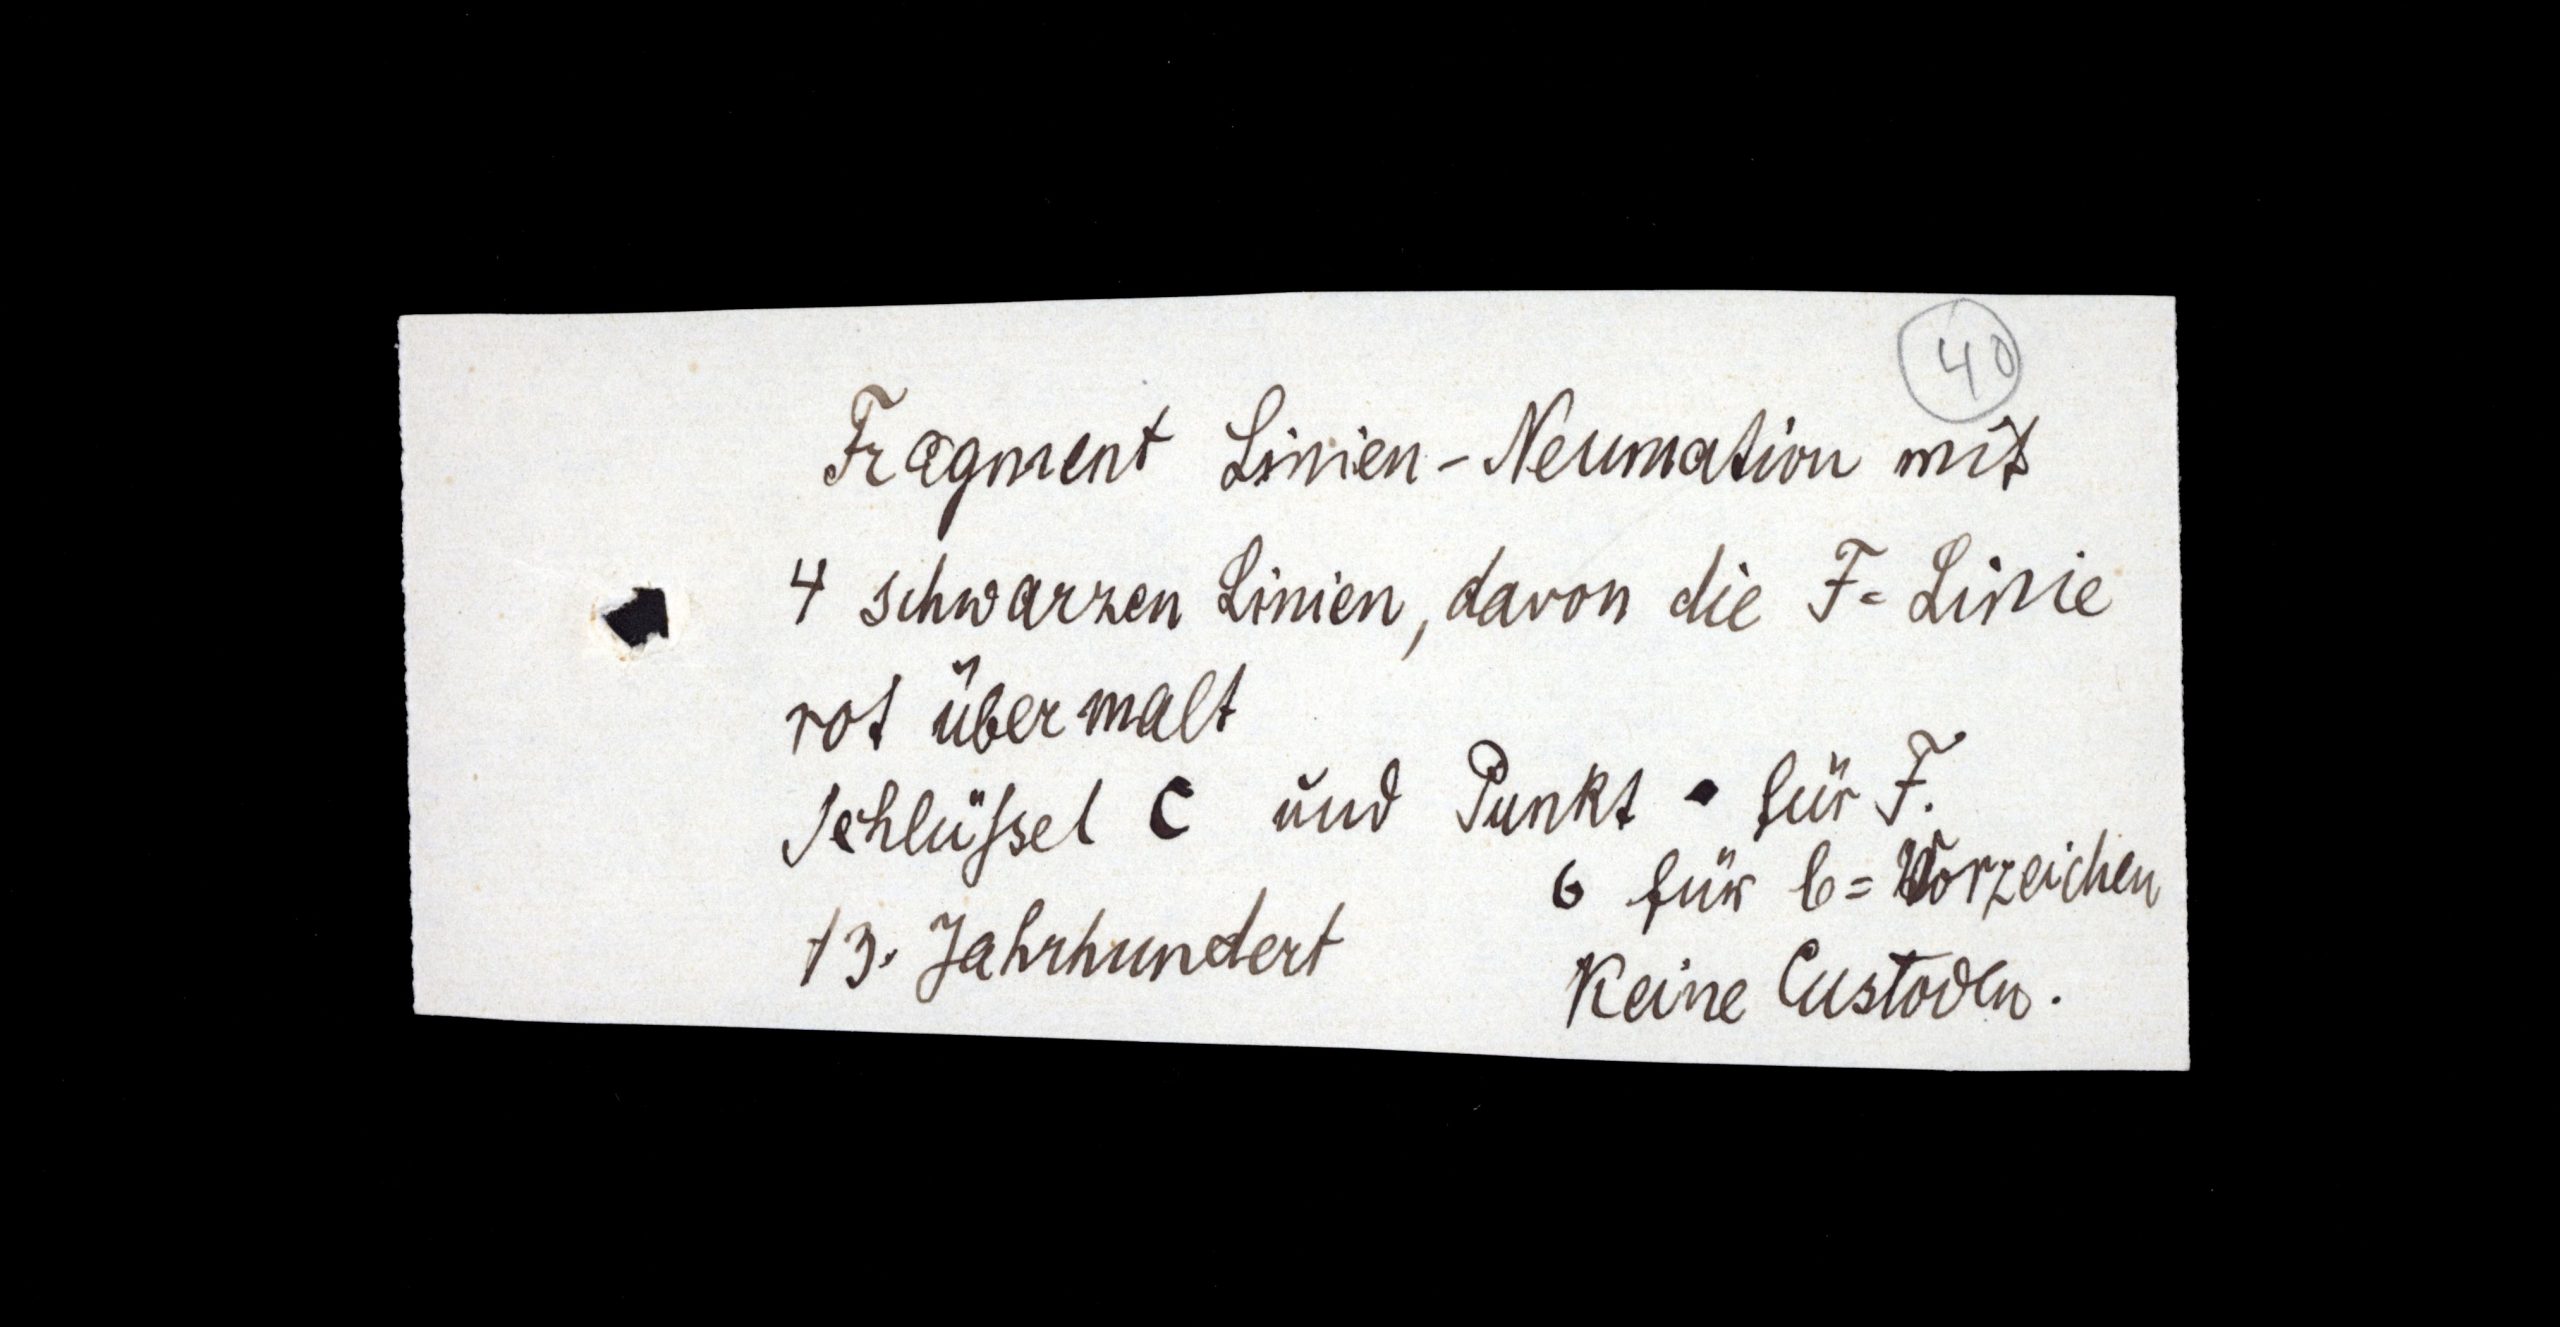 40
Fragment Linien-Neumation mit
4 schwarzen Linien, davon die F=Linie
rot übermalt
Schlüssel C und Punkt • für F.
b für b=Vorzeichen
13. Jahrhundert
Keine Custoden.